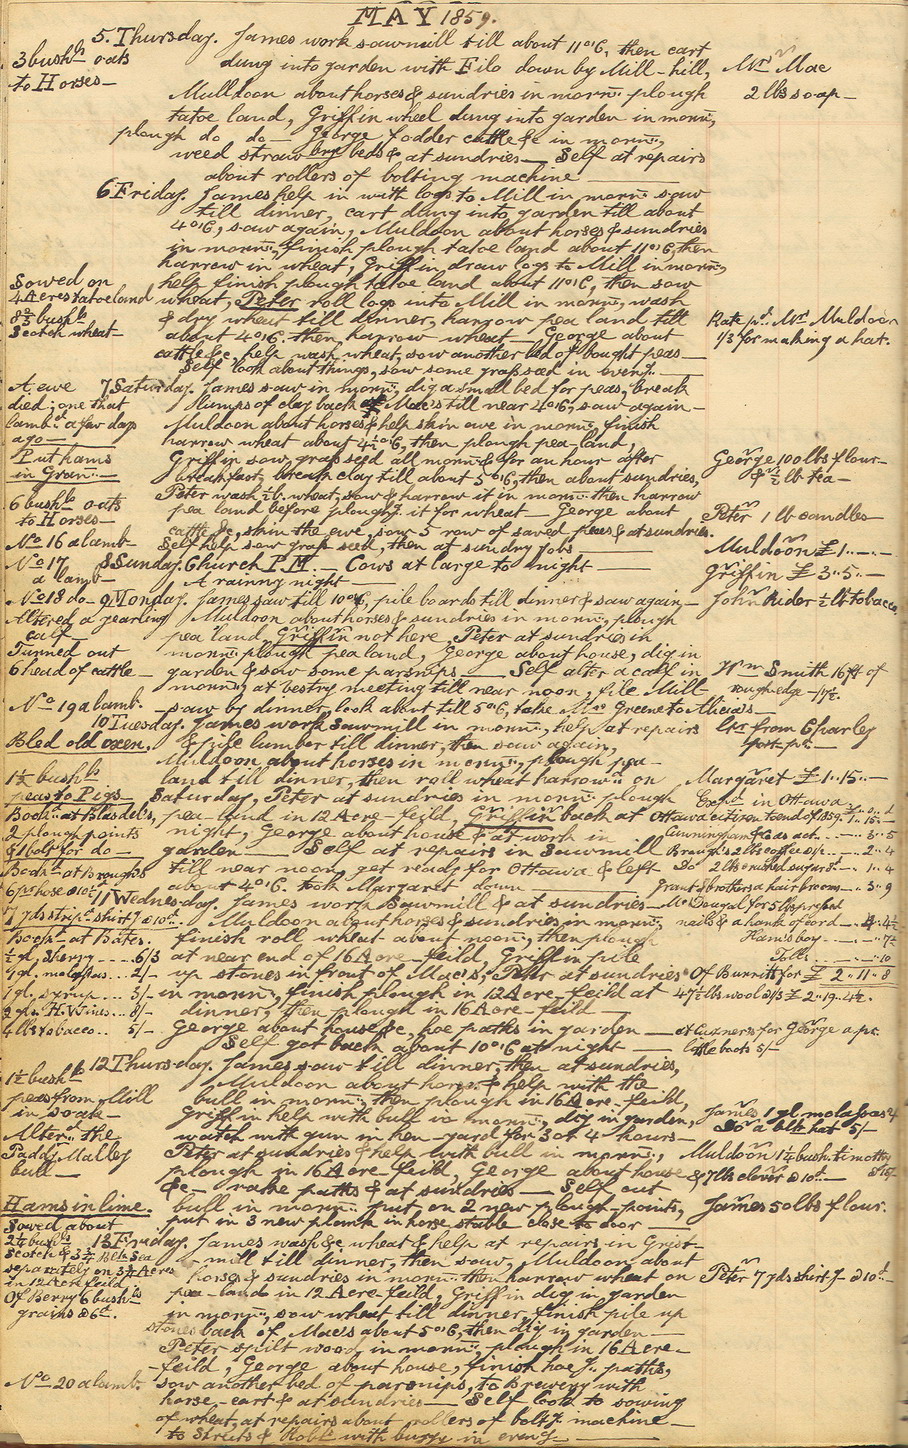 MAY 1859.
5. Thursday. James work sawmill till about 11 o'c, then cart
3 bushls oats
to Horses—
dung into garden with Filo down by Mill-hill,
Mrs Mac
2 lbs soap—
Mulldoon about horses & sundries in morng plough
tatoe land, Griffin wheel dung into garden in morng,
plough do do— George fodder cattle &c in morng,
weed straw bry beds & at sundries— Self at repairs
about rollers of bolting machine
6 Friday. James help in with logs to Mill in morng saw
till dinner, cart dung into garden till about
4 o'c, saw again, Muldoon about horses & sundries
in morng, finish plough tatoe land about 11 o'c, then
harrow in wheat, Griffin draw logs to Mill in morng,
Sowed on
4 Acres tatoe land
8 2/3 bushls
Scotch wheat—
help finish plough tatoe land about 11 o'c, then sow
wheat, Peter roll logs into Mill in morng, wash
& dry wheat till dinner, harrow pea land till
about 4 o'c. then, harrow wheat— George about
cattle &c, help wash wheat, sow another bed of bought peas—
Self look about things, sow some grass seed in eveng.—
Kate pd Mr Muldoon
1/3 for making a hat.
A ewe
died; one that
lambd a few days
ago—
7 Saturday. James saw in morng, dig a small bed for peas, break
lumps of clay back of Mac's till near 4 o'c, saw again—
Muldoon about horses & help skin ewe in morng, finish
harrow wheat about 4 1/2 o'c, then plough pea-land,
Put hams
in Gran—
Griffin sow grass seed all morng & for an hour after
breakfast, break clay till about 5 o'c, then about sundries,
George 100 lbs flour—
& 1/2 lb tea—
6 bushls oats
to Horses—
Peter wash 2 b. wheat, sow & harrow it in morng then harrow
pea land before ploughg it for wheat— George about
Peter 1 lb candles
cattle &c, skin the ewe, sow 5 row of saved peas & at sundries.
No 16 a lamb—
Self help sow grass seed, then at sundry jobs
Muldoon £1..—.—
No 17
a lamb—
8 Sunday. Church P.M.— Cows at large to night
A rainny night—
Griffin £3..5..—
No 18 do—
9 Monday. James saw till 10 o'c, pile boards till dinner & saw again—
John Rider 1/2 lb tobacco
Altered a yearling
calf—
Muldoon about horses & sundries in morng, plough
pea land, Griffin not here, Peter at sundries in
Turned out
6 head of cattle—
morng plough pea land, George about house, dig in
garden & sow some parsnips— Self alter a calf in
Wm Smith 16 ft of
rough edge -/7 1/2.
morng, at vestry meeting till near noon, file Mill
saw by dinner, look about till 5 o'c, take Mrs Greene to
No 19 a lamb.
10 Tuesday. James work Sawmill in morng, help at repairs
Bled old oxen.
& pile lumber till dinner, then saw again,
Muldoon about horses in morng, plough pea—
1 1/2 bushls
peas to Pigs—
land till dinner, then roll wheat harrowd on
Saturday, Peter at sundries in morng plough
Margaret £1..15..—
Bot at Blasdels,
2 plough points
& 1 bolt for do—
pea-land in 12 Acre-feild, Griffin back at
night, George about house & at work in
garden— Self at repairs in Sawmill
Expd in Ottawa
Ottawa citizen to end of 1859. 1..15..—
Bot at Brough's
6 pr hose @ 10d
till near noon, get ready for Ottawa & left
about 4 o'c. took Margaret down
Do 2 lbs crushed sugar 8d—. 1..4
Grant & brothers a hair broom—.. 3..9
7 yds stripd shirtg @ 10d.
11 Wednesday. James work Sawmill & at sundries—
Muldoon about horses & sundries in morng,
McDougal for 5 lbs
nails & a hank of cord
Bot at Bates.
1/2 gl, Sherry ---- 6/3
1 gl. molasses... 2/—
1 gl. syrup... 3/—
2 gls H. Wines... 8/—
4 lbs tobacco.. 5/—
finish roll wheat about noon, then plough
at near end of 16 Acre-feild, Griffin pile
up stones in front of Mac's, Peter at sundries
in morng, finish plough in 12 Acre-feild at
dinner, then plough in 16 Acre-feild—
George about house &c, hoe paths in garden—
Self got back about 10 o'c at night—
Ham's boy—. .—.. 7 1/2
Tolls
£2..11..8
Of Burritt for
47 1/2 lbs wool @ 1/3 £2..19..4 1/2.
for George a pr.
little boots 5/—
1 1/2 bushls
peas from Mill
in soak—
12 Thursday. James saw till dinner, then at sundries,
Muldoon about horses & help with the
bull in morng, then plough in 16 Acre-feild,
Griffin help with bull in morng, dig in garden,
watch with gun in hen-yard for 3 or 4 hours—
James 1 gl. molasses 2/
Do a blk hat 5/—
Alterd the
Paddy Malley
bull—
Peter at sundries & help with bull in morng,
plough in 16 Acre-feild, George about house
&c— rake paths & at sundries— Self cut
Muldoon 1 1/4 bush. timothy
& 7 lbs clover @ 10d—
Hams in lime.
bull in morng, put on 2 new plough-points,
put in 3 new plank in horse stable close to door
James 50 lbs flour.
Sowed about
2 1/4 bushls
Scotch & 3 3/4 Blk Sea
separately on 3 3/4 Acres
in 12 Acre feild.
13 Friday. James wash &c wheat & help at repairs in Grist
mill till dinner, then saw, Muldoon about
horses & sundries in morng then harrow wheat on
pea-land in 12 Acre-feild, Griffin dig in garden
Peter 7 yds shirtg @ 10d—
Of Berry 6 bushls
grains @ 6d.
in morng, sow wheat till dinner, finish pile up
stones back of Mac's about 5 o'c, then dig in garden—
Peter split wood in morng, plough in 16 Acre—
-feild, George about house, finish hoeg paths,
No 20 a lamb.
sow another bed of parsnips, to Brewery with
horse-cart & at sundries— Self look to sowing
of wheat, at repairs about rollers of boltg machine—
to Streets & Robt with buggy in eveng—